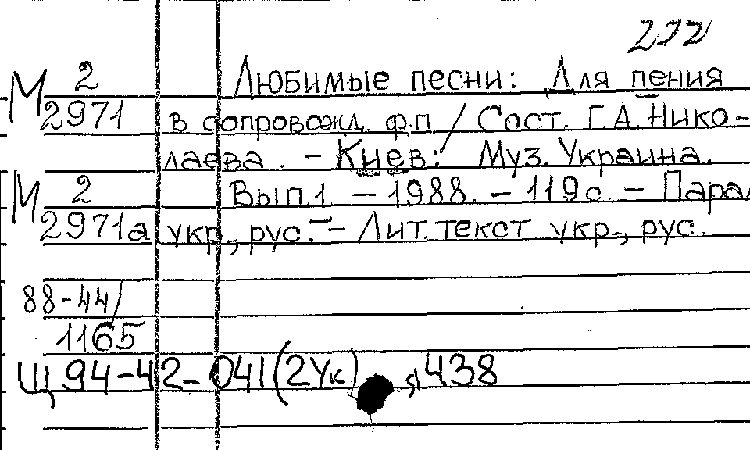 232
М 2 Любимые песни: Для пения
2971 в сопровожд. ф.п / Сост. Г.А.Нико-
лаева. - Киев: Муз. Украина.
М 2 Вып.1 - 1988. - 119с. - Парал
2971а укр., рус. - Лит.текст укр., рус.
88-44/
1165
Щ94-42-041(2Ук) я438